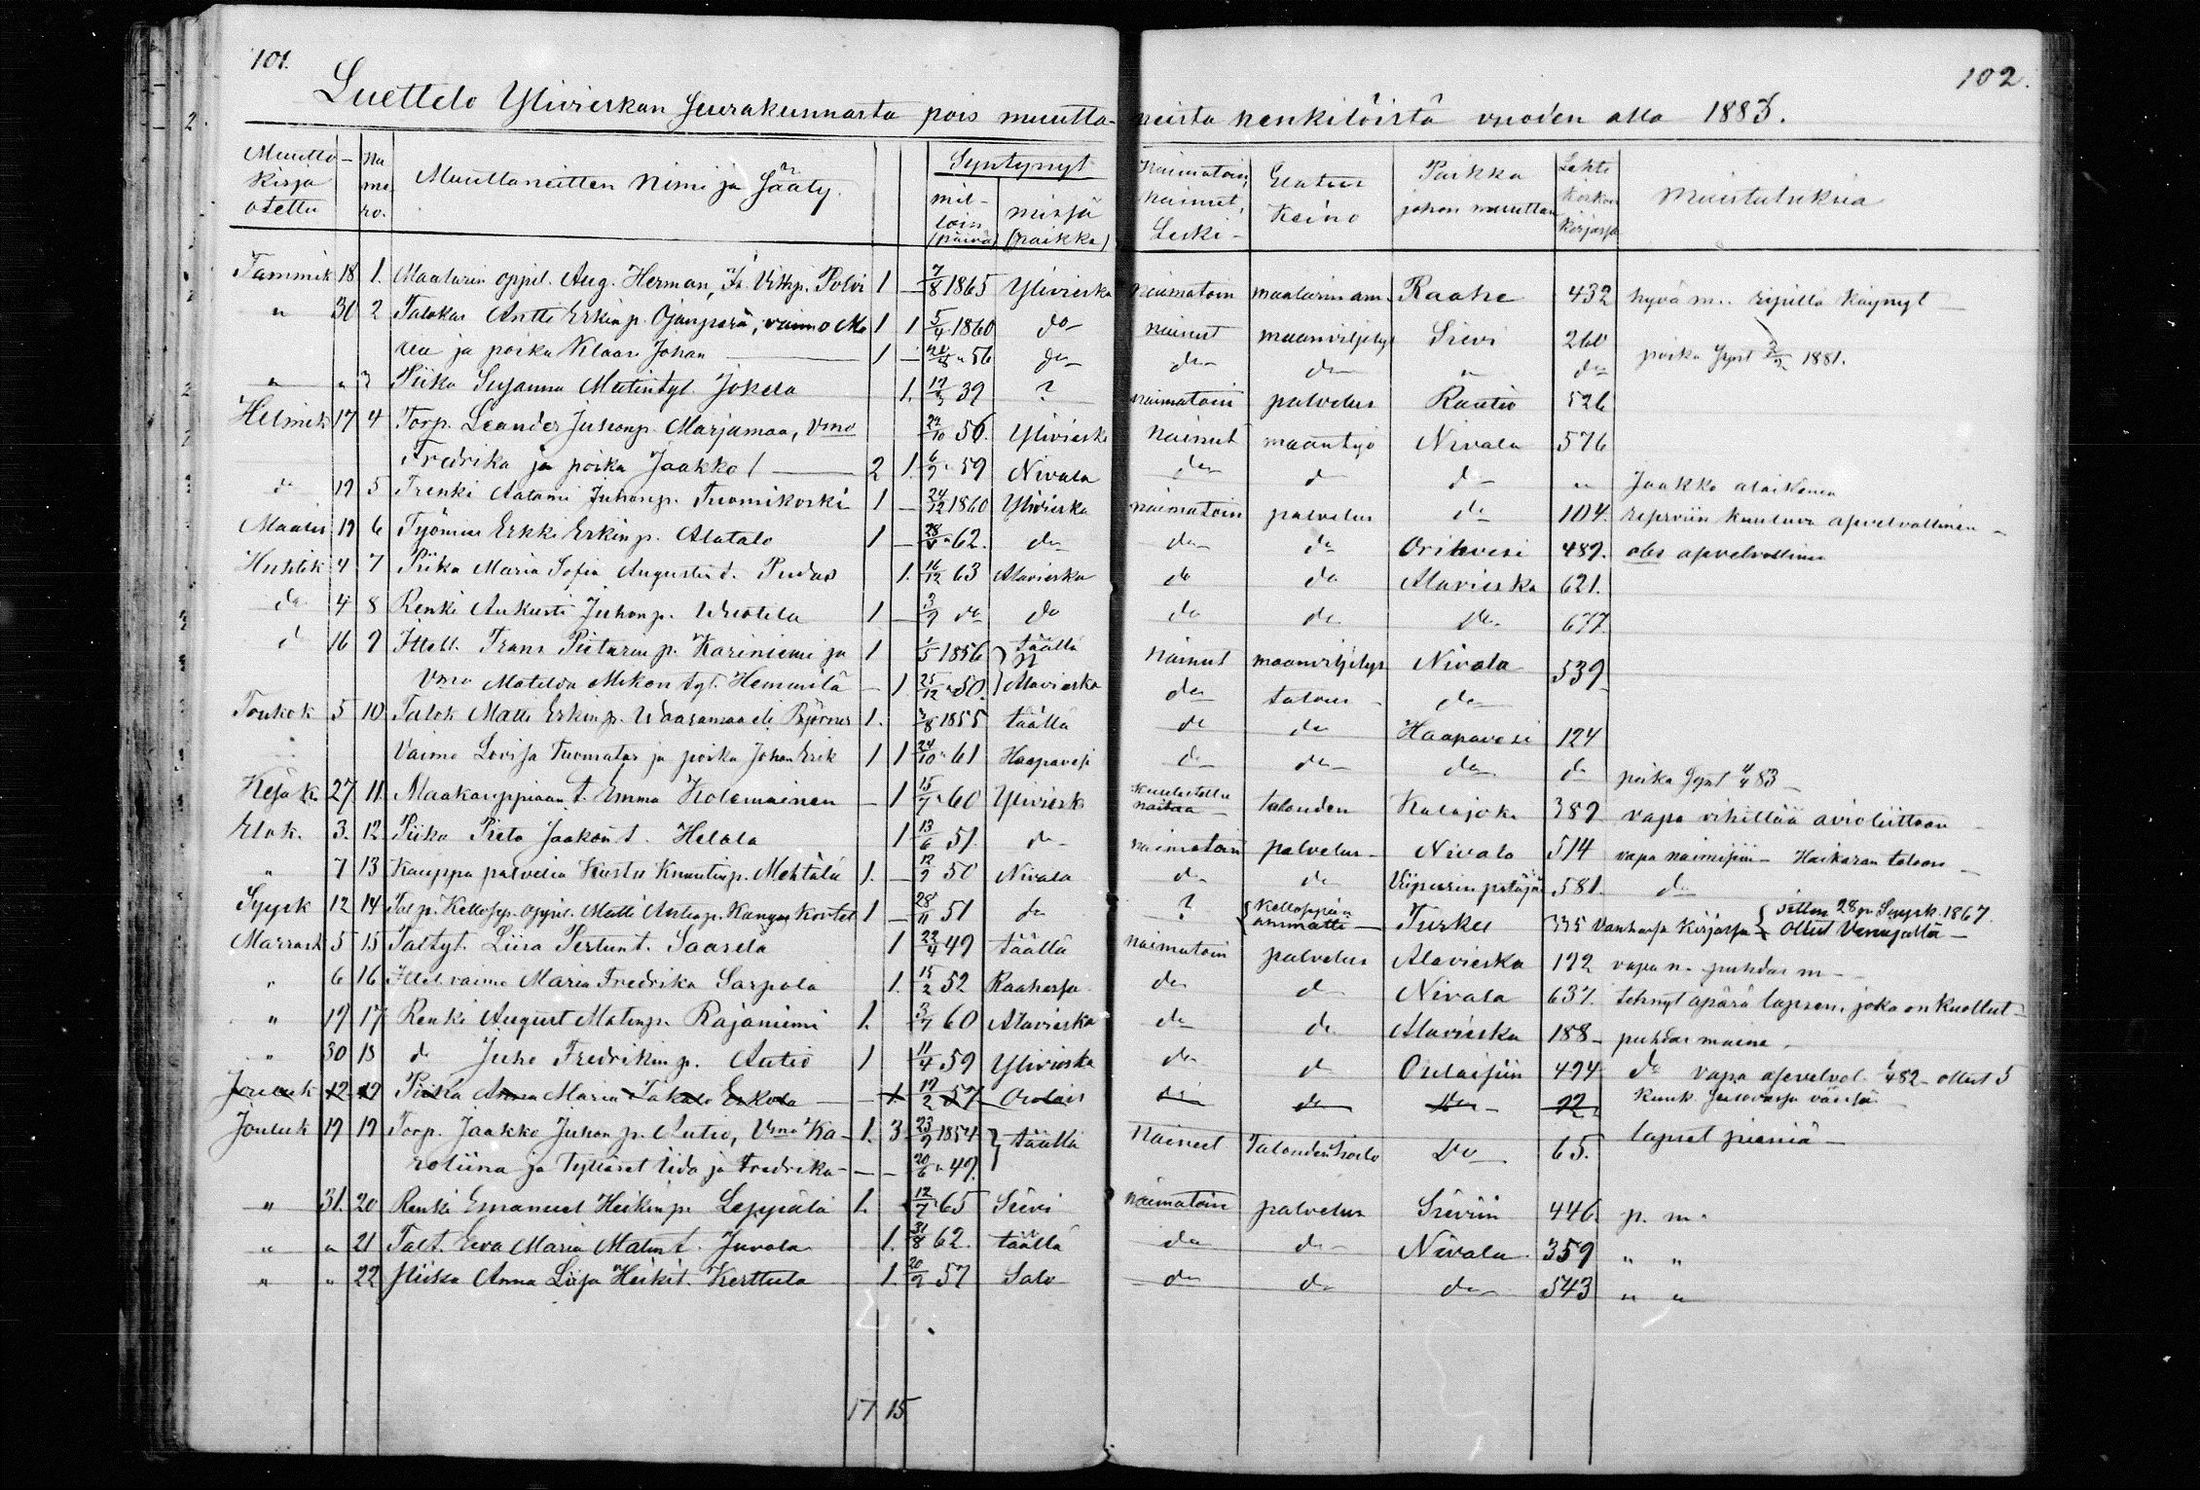 101.
102.
Luettelo Ylivieskan Seurakunnasta pois muuttaneista henkilöistä vuoden alla 1883.
Muuttokirja otettu Numero. Muuttaneitten Nimi ja Sääty. Syntynyt milloin (päivä) missä (paikka) Naimatoin, nainut, Leski- Elatus Keino Paikka johon muuttan Lehti Kirkon kirjassa Muistutuksia
Tammik 18 1. Maalarin oppil. Aug. Herman, Polvi 1 — 7/8 1865 Ylivieska naimatoin maalarin am. Raahe 432 hyvä m. ripillä käynyt
" 30 2 Talokas Antti Erkinp. Ojanperä, vaimo Ma 1 1 5/4 1860 do nainut maanviljelys Sievi 260
ria ja poika Klaas Johan 1 — " 56 do do do " do poika Synt 1881.
" " 3 Piika Susanna Matintyt. Jokela 1. 39 ? naimatoin palvelus Rautio 526
Helmik 17 4 Torp. Leander Juhonp. Marjamaa, Vmo 22/10 56. Ylivieska nainut maantyö Nivala 576
Fredrika ja poika Jaakko 2 1. 6/9 " 59 Nivala do d do " Jaakko alaikänen
do 19 5 Trenki Aatami Juhonp. Tuomikoski 1 — 24/12 1860 Ylivieska naimatoin palvelus do 104. reserviin kuuluva asevelvollinen
Maalis 19 6 Työmies Erkki Erkinp. Alatalo 1 — " 62. do do do Orihvesi 489. oles asevelvollinen
Huhtik 4 7 Piika Maria Sofia Augustint. Pudas 1. 16/12 63 Alavieska do do Alavieska 621.
do 4 8 Renki Aukusti Juhonp. 1 — 3/9 do do do do do 677.
d 16 9 Itsell. Frans Pietarinp. Kariniemi ja 1 1/5 1856 täällä nainut maanviljelys Nivala 539
Vmo Matilda Mikontyt. Hemmilä — 1 25/12 " 50. Alavieska do talous do
Toukok 5 10 Talok Matti Erkinp. Waaramaa eli Björnes 1. 3/8 1855 täällä do do Haapavesi 124
Vaimo Lovisa Tuomatar ja poika Johan Erik 1 1 24/10 " 61 Haapavesi do do do do poika Synt 83
Kesäk. 27 11. Maakauppiaan t. Emma Kolemainen — 1 15/7 " 60 Ylivieska kuulutettu naitaa talouden Kalajoki 389 vapa vihillää avioliittoon
Elok. 3. 12 Piika Pieta Jaakont. Helala 1 13/6 51. do naimatoin palvelus Nivala 514 vapa naimisiin Haikaran taloon
" 7 13 Kauppa palvelia Kustu Knuutinp. Mehtälä 1. — 12/9 50 Nivala do do Viipurin pitäjä 581. do
Syysk 12 14 Talp. Kellosep. oppil. Matti Antinp. Kangas Kortet 1 — 28/11 51 do ? Kelloseppä ammatti Turku 335 Vanhassa Kirjassa sitten 28 p Syysk. 1867. ollut Venäjällä
Marrask 5 15 Taltyt. Liisa Pertunt. Saarela 1 22/4 49 täällä naimatoin palvelus Alavieska 192 vapa n. puhdas m
" 6 16 Itsel. vaimo Maria Fredrika Sarpola 1. 15/2 52 Raahessa do d Nivala 637. tehnyt äpärä lapsen, joka on kuollut
" 19 17 Renki August Matinp. Rajaniemi 1. 3/7 60 Alavieska do do Alavieska 188 puhdas maine
" 30 18 do Juho Fredrikinp. Autio 1 11/4 59 Ylivieska do d Oulaisiin 494 do vapa asevelvol. 82 ollut 5
Jouluk 12 19 Piika Anna Maria Takalo Erkola — 1 19/2 57 Oulais do do do 92 Kuuk.
Jouluk 19 19 Torp. Jaakko Juhonp. Autio, Vmo Ka- 1. 3 23/9 1854 täällä Naineet Talouden hoito Do 65. lapset pieniä
roliina ja Tyttäret Iida ja Fredrika — — 20/6 " 49.
" 31. 20 Renki Emanuel Heikinp. Leppälä 1. 12/7 65 Sievi naimatoin palvelus Sieviin 446. p. m.
" " 21 Talt. Eva Maria Matint. Juvola 1. 31/8 62. täällä do do Nivala. 359 " "
" " 22 Piika Anna Liisa Heikit. Kerttula 1 20/9 57 Salo do do do 543 " "
17 15